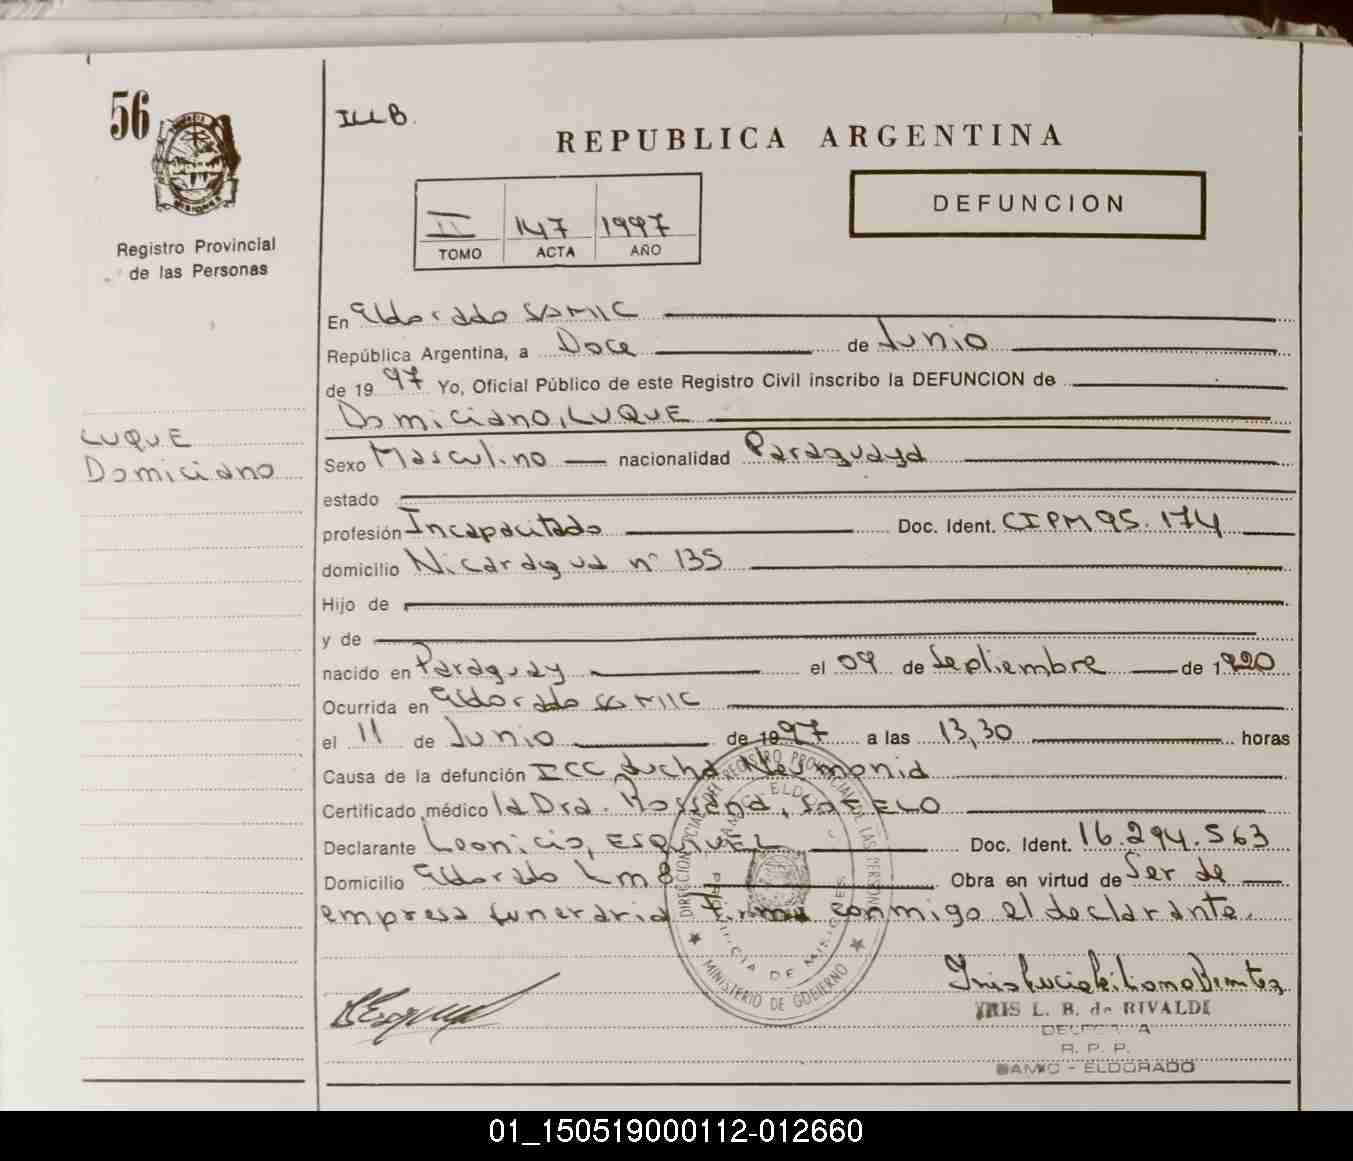 56
ILLB.
REPUBLICA ARGENTINA
DEFUNCION
II 147 1997
TOMO ACTA AÑO
Registro Provincial
de las Personas
En Eldorado SAMIC
República Argentina, a Doce de Junio
de 1997 Yo, Oficial Público de este Registro Civil inscribo la DEFUNCION de
Domiciano, LUQUE
LUQUE
Domiciano
Sexo Masculino nacionalidad Paraguaya
estado
profesión Incapacitado Doc. Ident. CIPM 95.174
domicilio Nicaragua nº 135
Hijo de
y de
nacido en Paraguay el 09 de Septiembre de 1920
Ocurrida en Eldorado SAMIC
el 11 de Junio de 1997 a las 13,30 horas
Causa de la defunción ICC
Certificado médico la Dra. Rossana,
Declarante Leonicio, ESQUIVEL Doc. Ident. 16.294.563
Domicilio Eldorado Km 8 Obra en virtud de Ser de
empresa funeraria firma conmigo el declarante.
DIRECCION DEL REGISTRO PROVINCIAL DE LAS PERSONAS
MINISTERIO DE GOBIERNO
PROVINCIA DE MISIONES
YRIS L. B. de RIVALDI
DELEGADA
R. P. P.
SAMIC - ELDORADO
01_150519000112-012660